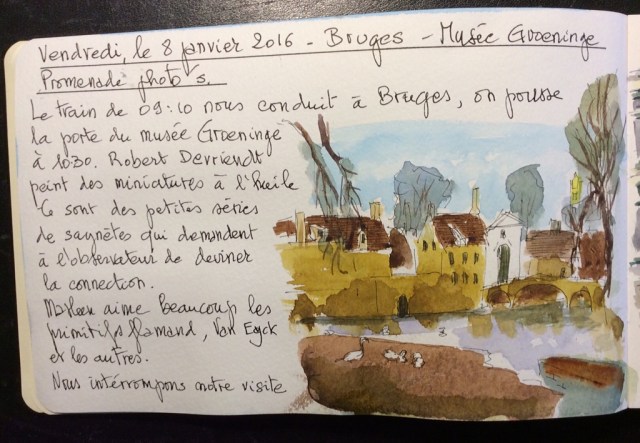 Vendredi, le 8 janvier 2016 - Bruges - Musée Groeninge
Promenade photos.
Le train de 09:10 nous conduit à Bruges, on pousse
la porte du musée Groeninge
à 10:30. Robert Devriendt
peint des miniatures à l'huile
Ce sont des petites séries
de saynètes qui demandent
à l'observateur de deviner
la connection.
aime beaucoup les
primitifs flamand, Van Eyck
et les autres.
Nous intérrompons notre visite